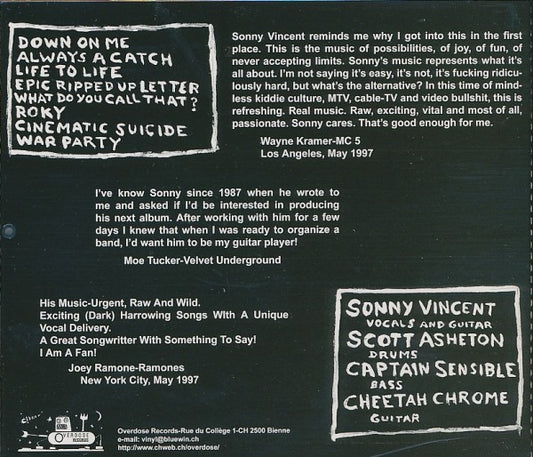 DOWN ON ME
ALWAYS A CATCH
LIFE TO LIFE
EPIC RIPPED UP LETTER
WHAT DO YOU CALL THAT?
ROKY
CINEMATIC SUICIDE
WAR PARTY
Sonny Vincent reminds me why I got into this in the first
place. This is the music of possibilities, of joy, of fun, of
never accepting limits. Sonny's music represents what it's
all about. I'm not saying it's easy, it's not, it's fucking ridicu-
lously hard, but what's the alternative? In this time of mind-
less kiddie culture, MTV, cable-TV and video bullshit, this is
refreshing. Real music. Raw, exciting, vital and most of all,
passionate. Sonny cares. That's good enough for me.
Wayne Kramer-MC 5
Los Angeles, May 1997
I've know Sonny since 1987 when he wrote to
me and asked if I'd be interested in producing
his next album. After working with him for a few
days I knew that when I was ready to organize a
band, I'd want him to be my guitar player!
Moe Tucker-Velvet Underground
His Music-Urgent, Raw And Wild.
Exciting (Dark) Harrowing Songs WIth A Unique
Vocal Delivery.
A Great Songwritter With Something To Say!
I Am A Fan!
Joey Ramone-Ramones
New York City, May 1997
SONNY VINCENT
VOCALS AND GUITAR
SCOTT ASHETON
DRUMS
CAPTAIN SENSIBLE
BASS
CHEETAH CHROME
GUITAR
OVERDOSE
RECORDS
Overdose Records-Rue du Collège 1-CH 2500 Bienne
e-mail: vinyl@bluewin.ch
http://www.chweb.ch/overdose/